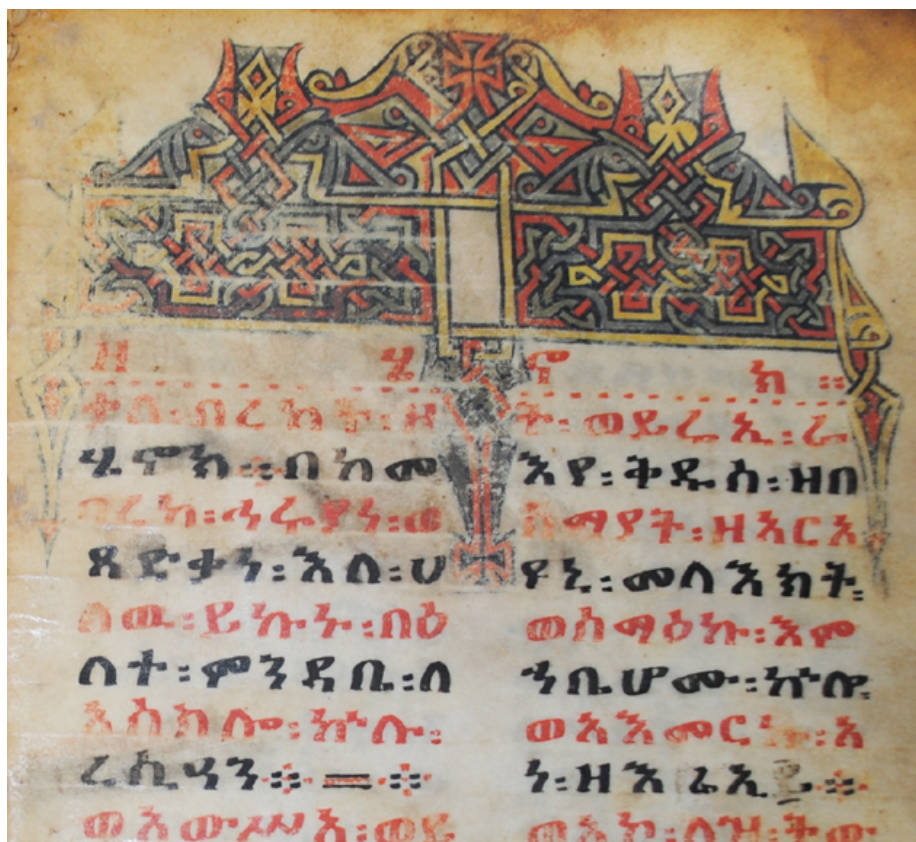 ዘ ሄ ኖ ክ ።
ቃለ፡በረከት፡ዘ
ሄኖክ፡በከመ
ባረከ፡ኅሩያነ፡ወ
ጻድቃነ፡እለ፡ሀ
ለዉ፡ይኩኑ፡በዕ
ለተ፡ምንዳቤ፡ለ
አሰስሎ፡ኵሉ፡
ረሲዓን፨ ፨
ወአውሥአ፡ወይ
ት፡ወይሬኢ፡ራ
እየ፡ቅዱሰ፡ዘበ
ሰማያት፡ዘአርአ
ዩኒ፡መላእክት፡
ወሰማዕኩ፡እም
ኀቤሆሙ፡ኵሎ፡
ወአእመርኩ፡አ
ነ፡ዘእሬኢ ።
ወአኮ፡ለዝ፡ትው